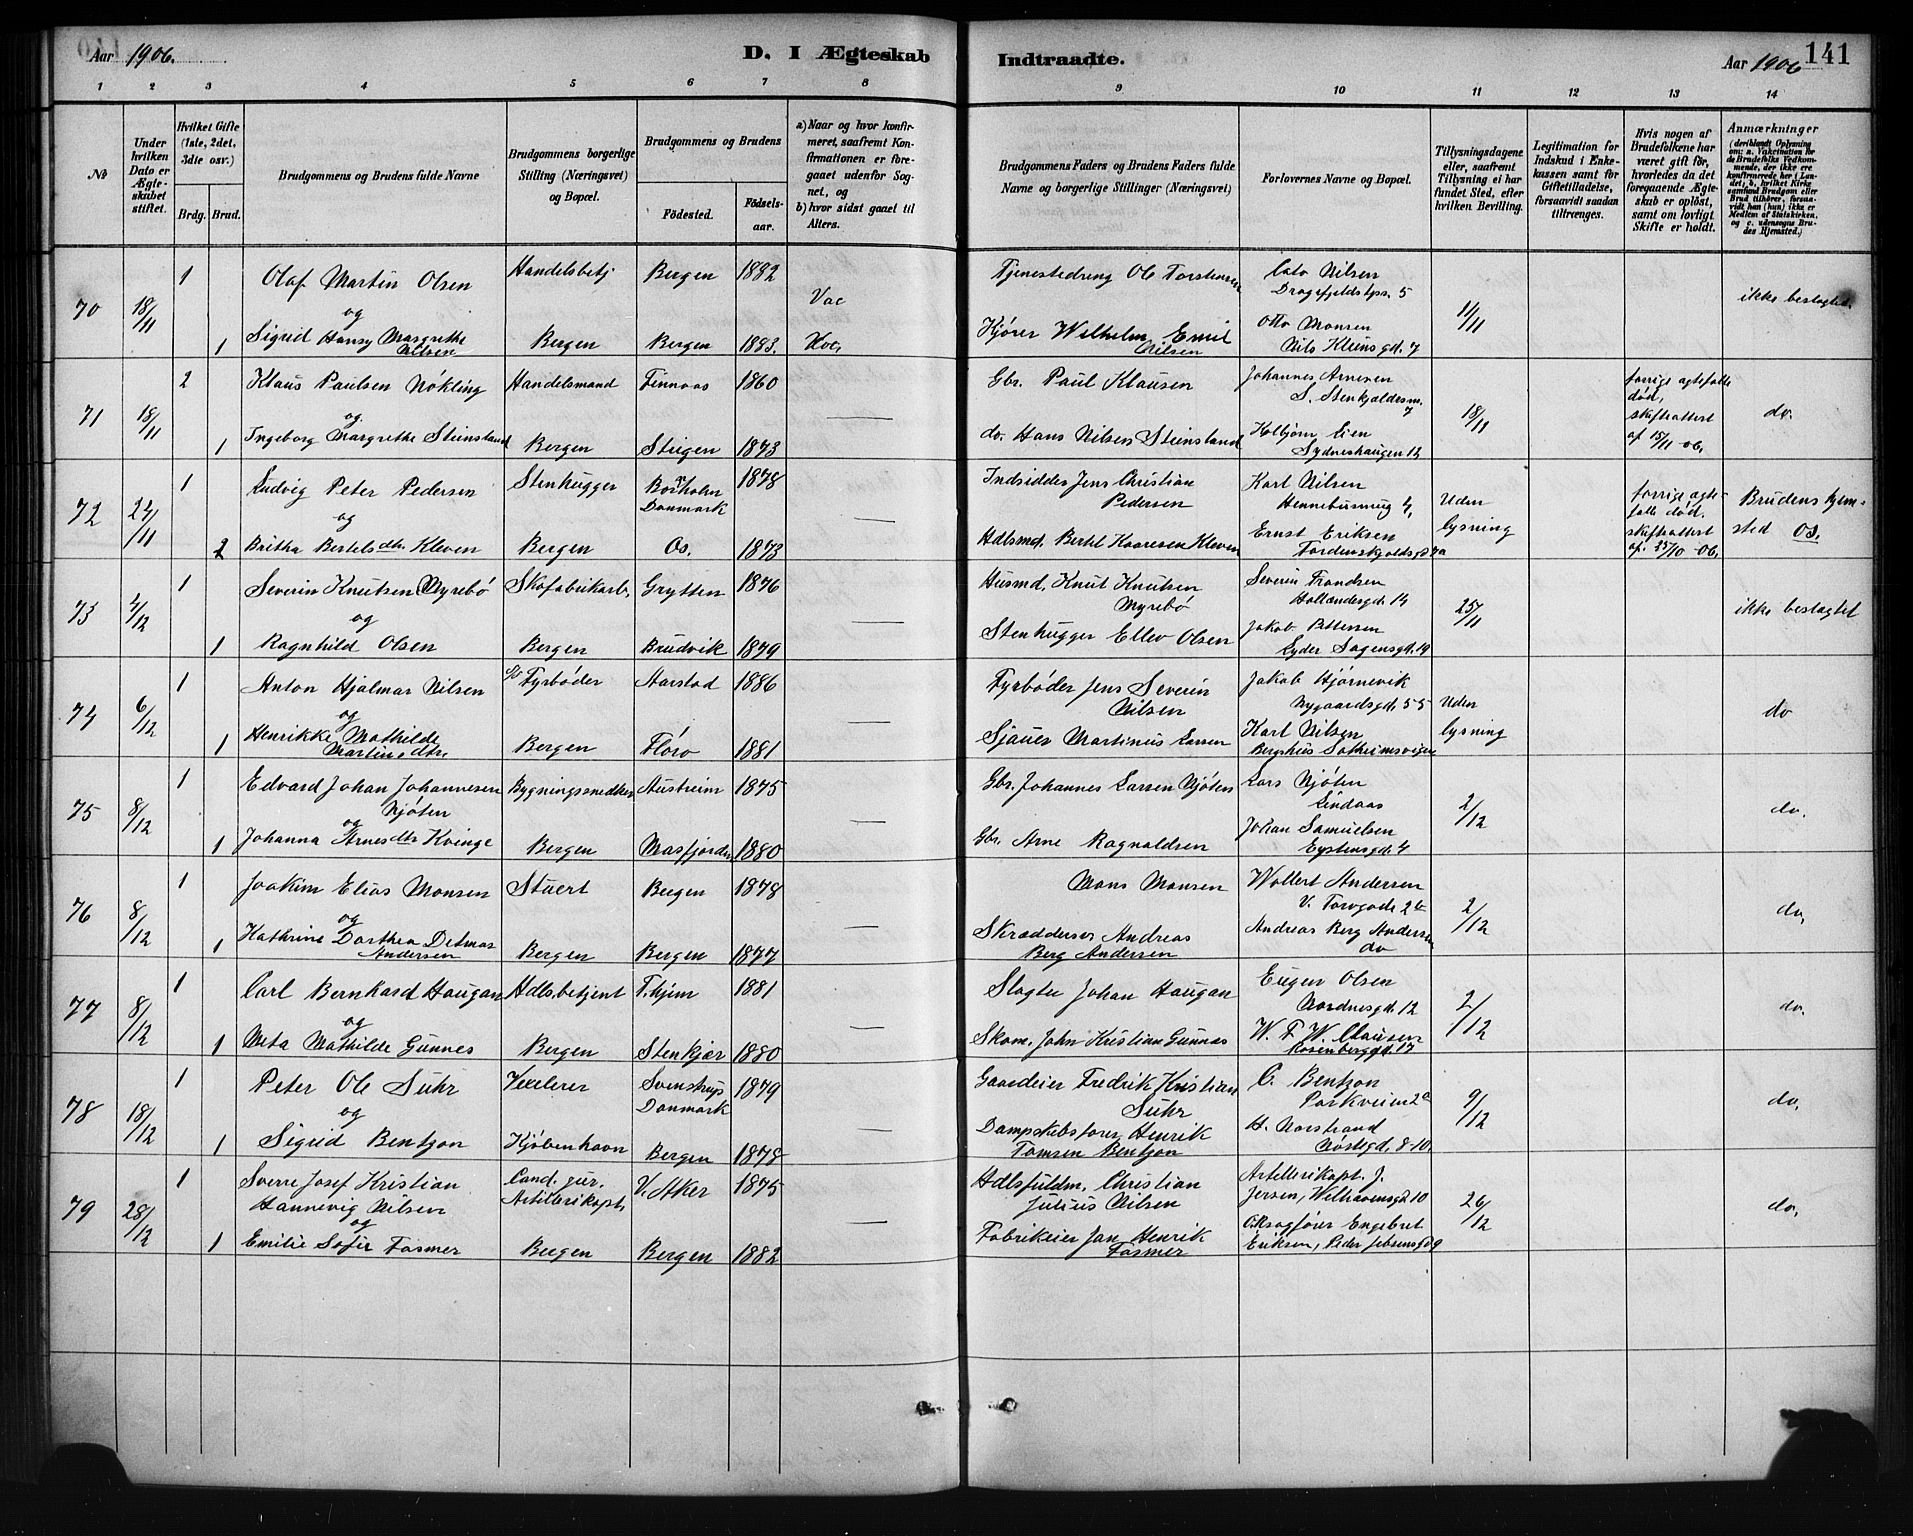 Aar 1906.
D. I Ægteskab
Indtraadte.
Aar 1906
141
1 2 3 4 5 6 7 8 9 10 11 12 13 14
No
Under hvilken Dato er Ægteskabet stiftet.
Hvilket Gifte (1ste, 2det, 3die osv.)
Brdg. Brud.
Brudgommens og Brudens fulde Navne
Brudgommens borgerlige Stilling (Næringsvei) og Bopæl.
Brudgommens og Brudens
Fødested.
Fødselsaar.
a) Naar og hvor konfirmeret, saafremt Konfirmationen er foregaaet udenfor Sognet, og
b) hvor sidst gaaet til Alters.
Brudgommens Faders og Brudens Faders fulde Navne og borgerlige Stillinger (Næringsvei)
Forlovernes Navne og Bopæl.
Tillysningsdagene eller, saafremt Tillysning ei har fundet Sted, efter hvilken Bevilling.
Legitimation for Indskud i Enkekassen samt for Giftetilladelse, forsaavidt saadan tiltrænges.
Hvis nogen af Brudefolkene har været gift før, hvorledes da det foregaaende Ægteskab er opløst, samt om lovligt Skifte er holdt.
Anmærkninger (deriblandt Oplysning om: a. Vakcination for de Brudefolks Vedkommende, der ikke ere konfirmerede her i Landet; b. hvilket Kirkesamfund Brudgom eller Brud tilhører, forsaavidt han (hun) ikke er Medlem af Statskirken, og c. udensogns Brudes Hjemsted.)
70 18/11 1 Olaf Martin Olsen Handelsbetj Bergen 1882 Vac Tjenestedreng Ole Torstensen Cato Nilsen
Dragefjeldstpr. 5 11/11 ikke bestaltet.
og
1 Sigrid Hansy Margrethe Nilsen Bergen Bergen 1883. Vac, Kjører Wilhelm Emil Nilsen Otto Monsen
Nils Kleins gd. 7
71 18/11 2 Klaus Paulsen Nøkling Handelsmand Finnaas 1860 Gbr. Paul Klausen Johannes Arnesen
S. Stenkjeldesm. 7 18/11 forrige ægtefælle død, skifteattest af 15/11 -06, do.
og
1 Ingeborg Margrethe Steinsland Bergen Steigen 1873 do. Hans Nilsen Steinsland Kolbjørn Eien
Sydneshaugen 12
72 24/11 1 Ludvig Peter Pedersen Stenhugger Bornholm Danmark 1878 Indsidder Jens Christian Pedersen Karl Nilsen
Hennebusmug 4, Uden lysning forrige ægtefælle død. skifteattest af. 25/10 -06. Brudens hjemsted Os.
og
2 Britha Bertelsdtr. Kleven Bergen Os. 1873 Hdlsmd. Bertel Kaaresen Kleven Ernst Eriksen
Tordenskjoldsgd. 7a
73 4/12 1 Severin Knutsen Myrebø Skofabrikarb. Grytten 1876 Husmd. Knut Knutsen Myrebø Severin Frandsen
Hollændergd. 14 25/11 ikke bestaltet
og
1 Ragnhild Olsen Bergen Brudvik 1879 Stenhugger Ellev Olsen Jakob Pettersen
Lyder Sagensgd. 19
74 6/12 1 Anton Hjalmar Nilsen Fyrbøder Aarstad 1886 Fyrbøder Jens Severin Nilsen Jakob Hjørnevik
Nygaardsgd. 55 Uden lysning do
og
1 Henrikke Mathilde Martinsdtr. Bergen Florø 1881 Sjauer Martinus Larsen Karl Nilsen
Bergshus Solheimsvigen
75 8/12 1 Edvard Johan Johannesen Njøten Bygningssnedker Austreim 1875 Gbr. Johannes Larsen Njøten Lars Njøten
Lindaas 2/12 do.
og
1 Johanna Arnesdtr Kvinge Bergen Masfjorden 1880 Gbr. Arne Ragnaldsen Johan Samuelsen
Eystensgd. 4
76 8/12 1 Joakim Elias Monsen Stuert Bergen 1878 Mons Monsen Wollert Andersen
V. Torvgade 2b 2/12 do,
og
1 Kathrine Dorthea Detmas Andersen Bergen Bergen 1877 Skræddersv Andreas Berg Andersen Andreas Berg Andersen
do
77 8/12 1 Carl Bernhard Haugan Hdls.betjent T.hjem 1881 Slagter Johan Haugan Eugen Olsen
Nordnesgd. 12 2/12 do.
og
1 Meta Mathilde Gunnes Bergen Stenkjær 1880 Skom. John Kristian Gunnas W. F. W. Clausen
Rosenberggd. 17
78 18/12 1 Peter Ole Suhr Vexelerer Svenstrup Danmark 1879 Gaardeier Fredrik Kristian Suhr C. Bentzon
Parkveien 2a 9/12 do,
og
1 Sigrid Bentzon Kjøbenhavn Bergen 1878 Dampskibsfører Henrik Tomsen Bentzon H. Norstrand
Nøstegd. 8-10.
79 28/12 1 Sverre Josef Kristian Hannevig Nilsen Cand. jur. Artillerikapt. V. Aker 1875 Hdlsfuldm. Christian Julius Nilsen Artillerikapt. J.
Jersen, Welhavensgd 10 26/12 do,
og
1 Emilie Sofie Fasmer Bergen Bergen 1882 Fabrikeier Jan Henrik Fasmer O.Ksagfører Engebret
Eriksen, Peder Jebsensgd 9